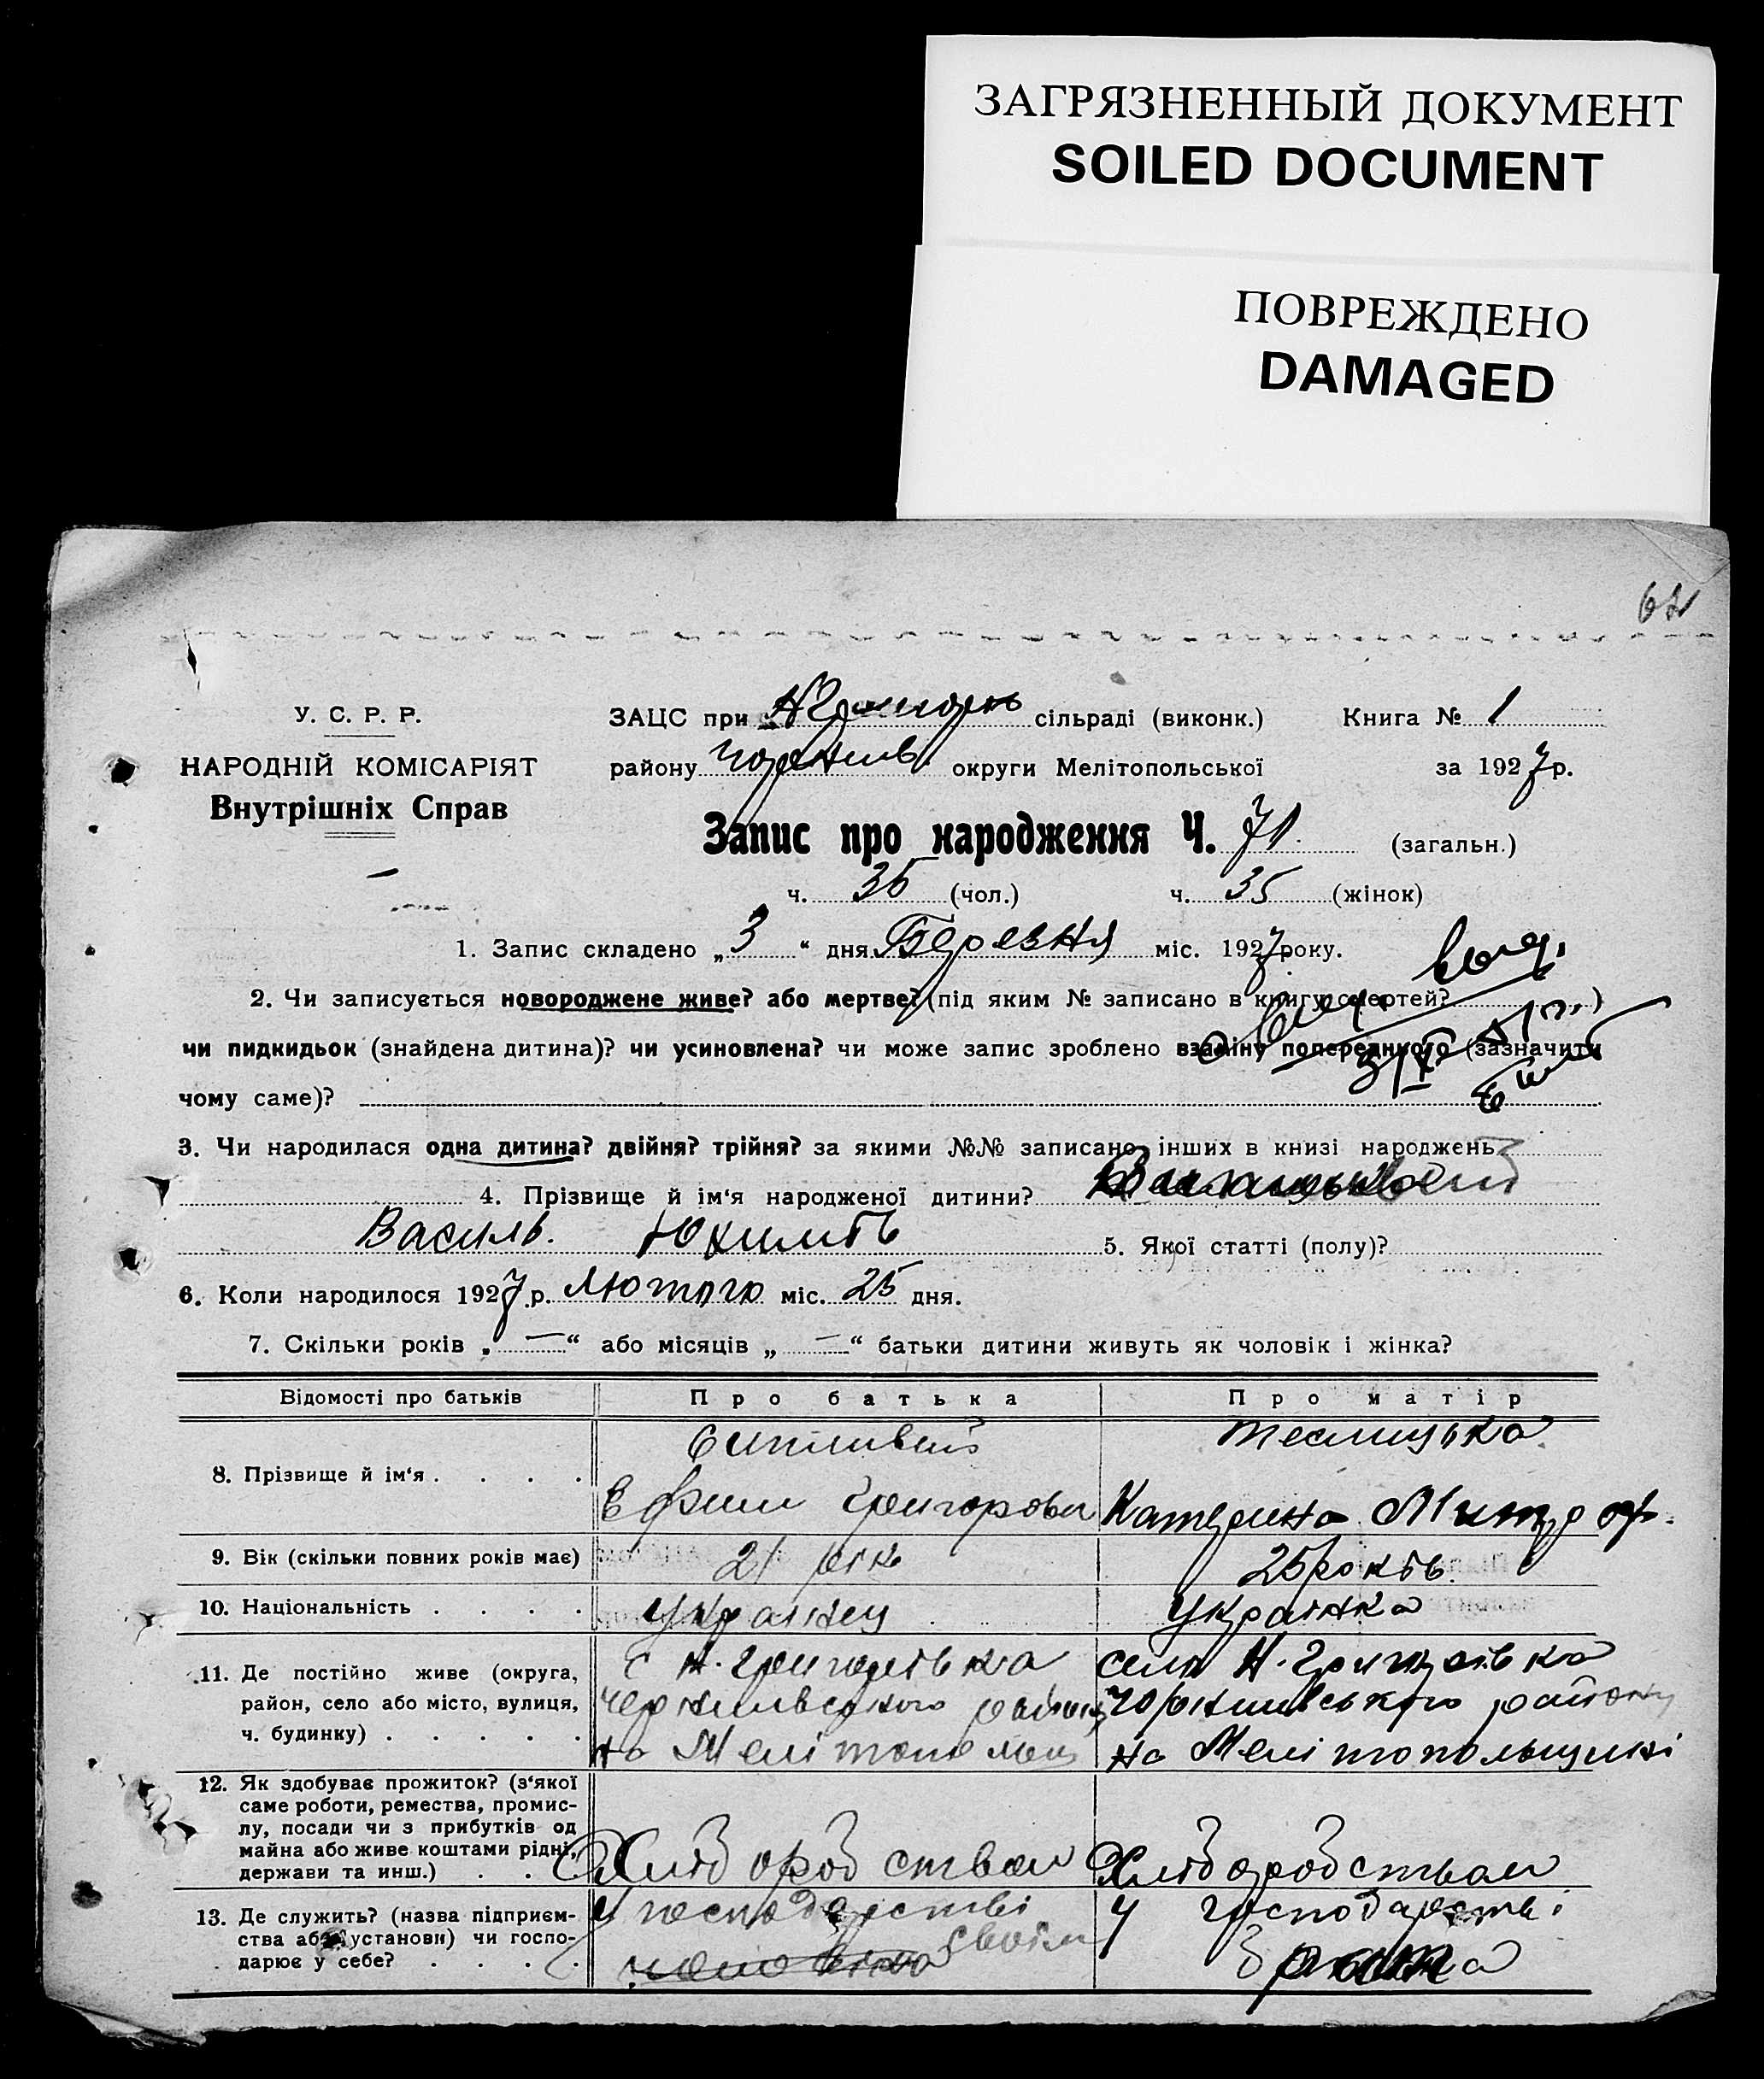 ЗАГРЯЗНЕННЫЙ ДОКУМЕНТ
SOILED DOCUMENT
ПОВРЕЖДЕНО
DAMAGED
У. С. Р. Р.
НАРОДНІЙ КОМІСАРІЯТ
Внутрішніх Справ
ЗАЦС при сільраді (виконк.) Книга № 1
району округи Мелітопольської за 1927 р.
Запис про народження Ч. 71. (загальн.)
ч. 36 (чол.) ч. 35 (жінок)
1. Запис складено „3“ дня Березня міс. 1927 року.
2. Чи записується новороджене живе? або мертве? (під яким № записано в книгу смертей? )
чи пидкидьок (знайдена дитина)? чи усиновлена? чи може запис зроблено взаміну попереднього (зазначити
чому саме)?
3. Чи народилася одна дитина? двійня? трійня? за якими №№ записано інших в книзі народжень
4. Прізвище й ім'я народженої дитини?
Василь. 5. Якої статті (полу)?
6. Коли народилося 1927 р. Лютого міс. 25 дня.
7. Скільки років „—“ або місяців „—“ батьки дитини живуть як чоловік і жінка?
Відомості про батьків Про батька Про матір
8. Прізвище й ім'я . . . .
Ефим Григоров Катерина Митроф.
9. Вік (скільки повних років має) 21 рік 25 років.
10. Національність . . . . Украінец Украінка
11. Де постійно живе (округа, с Н. Григорівка село Н. Григорівка
район, село або місто, вулиця, району району
ч. будинку) . . . . . на на Мелітопольщині
12. Як здобуває прожиток? (з'якої
саме роботи, ремества, промис-
лу, посади чи з прибутків од
майна або живе коштами рідні,
держави та инш.) . . . Хліборобством Хліборобством
13. Де служить? (назва підприєм- У господарстві У господарстві
ства або установи) чи госпо- своім
дарює у себе? . . . .